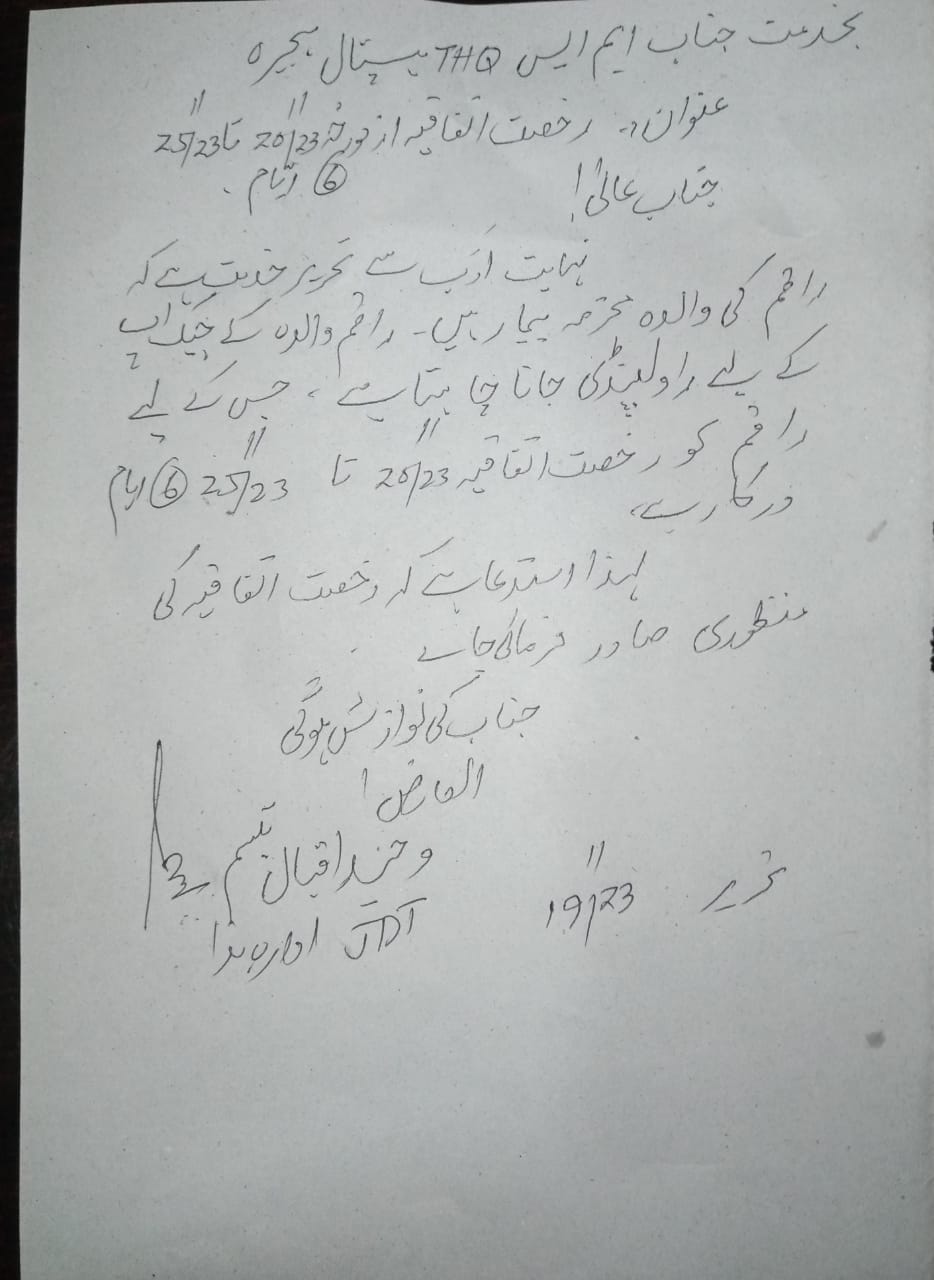 بخدمت جناب ایم ایس THQ ہسپتال ہجیرہ
عنوان:۔ رخصت اتفاقیہ از مورخہ 20/11/23 تا 25/11/23
جناب عالی! 6 ایام ۔
نہایت ادب سے تحریر خدمت ہے کہ
راقم کی والدہ محترمہ بیمار ہیں۔ راقم والدہ کے چیک اپ
کے لیے راولپنڈی جانا چاہتا ہے ، جس کے لیے
راقم کو رخصت اتفاقیہ 20/11/23 تا 25/11/23 6 ایام
درکار ہے،
لہذا استدعا ہے کہ رخصت اتفاقیہ کی
منظوری صادر فرمائی جائے ۔
جناب کی نوازش ہوگی
العارض!
اقبال تبسم
تحریر 19/11/23
JDT ادارہ ہذا